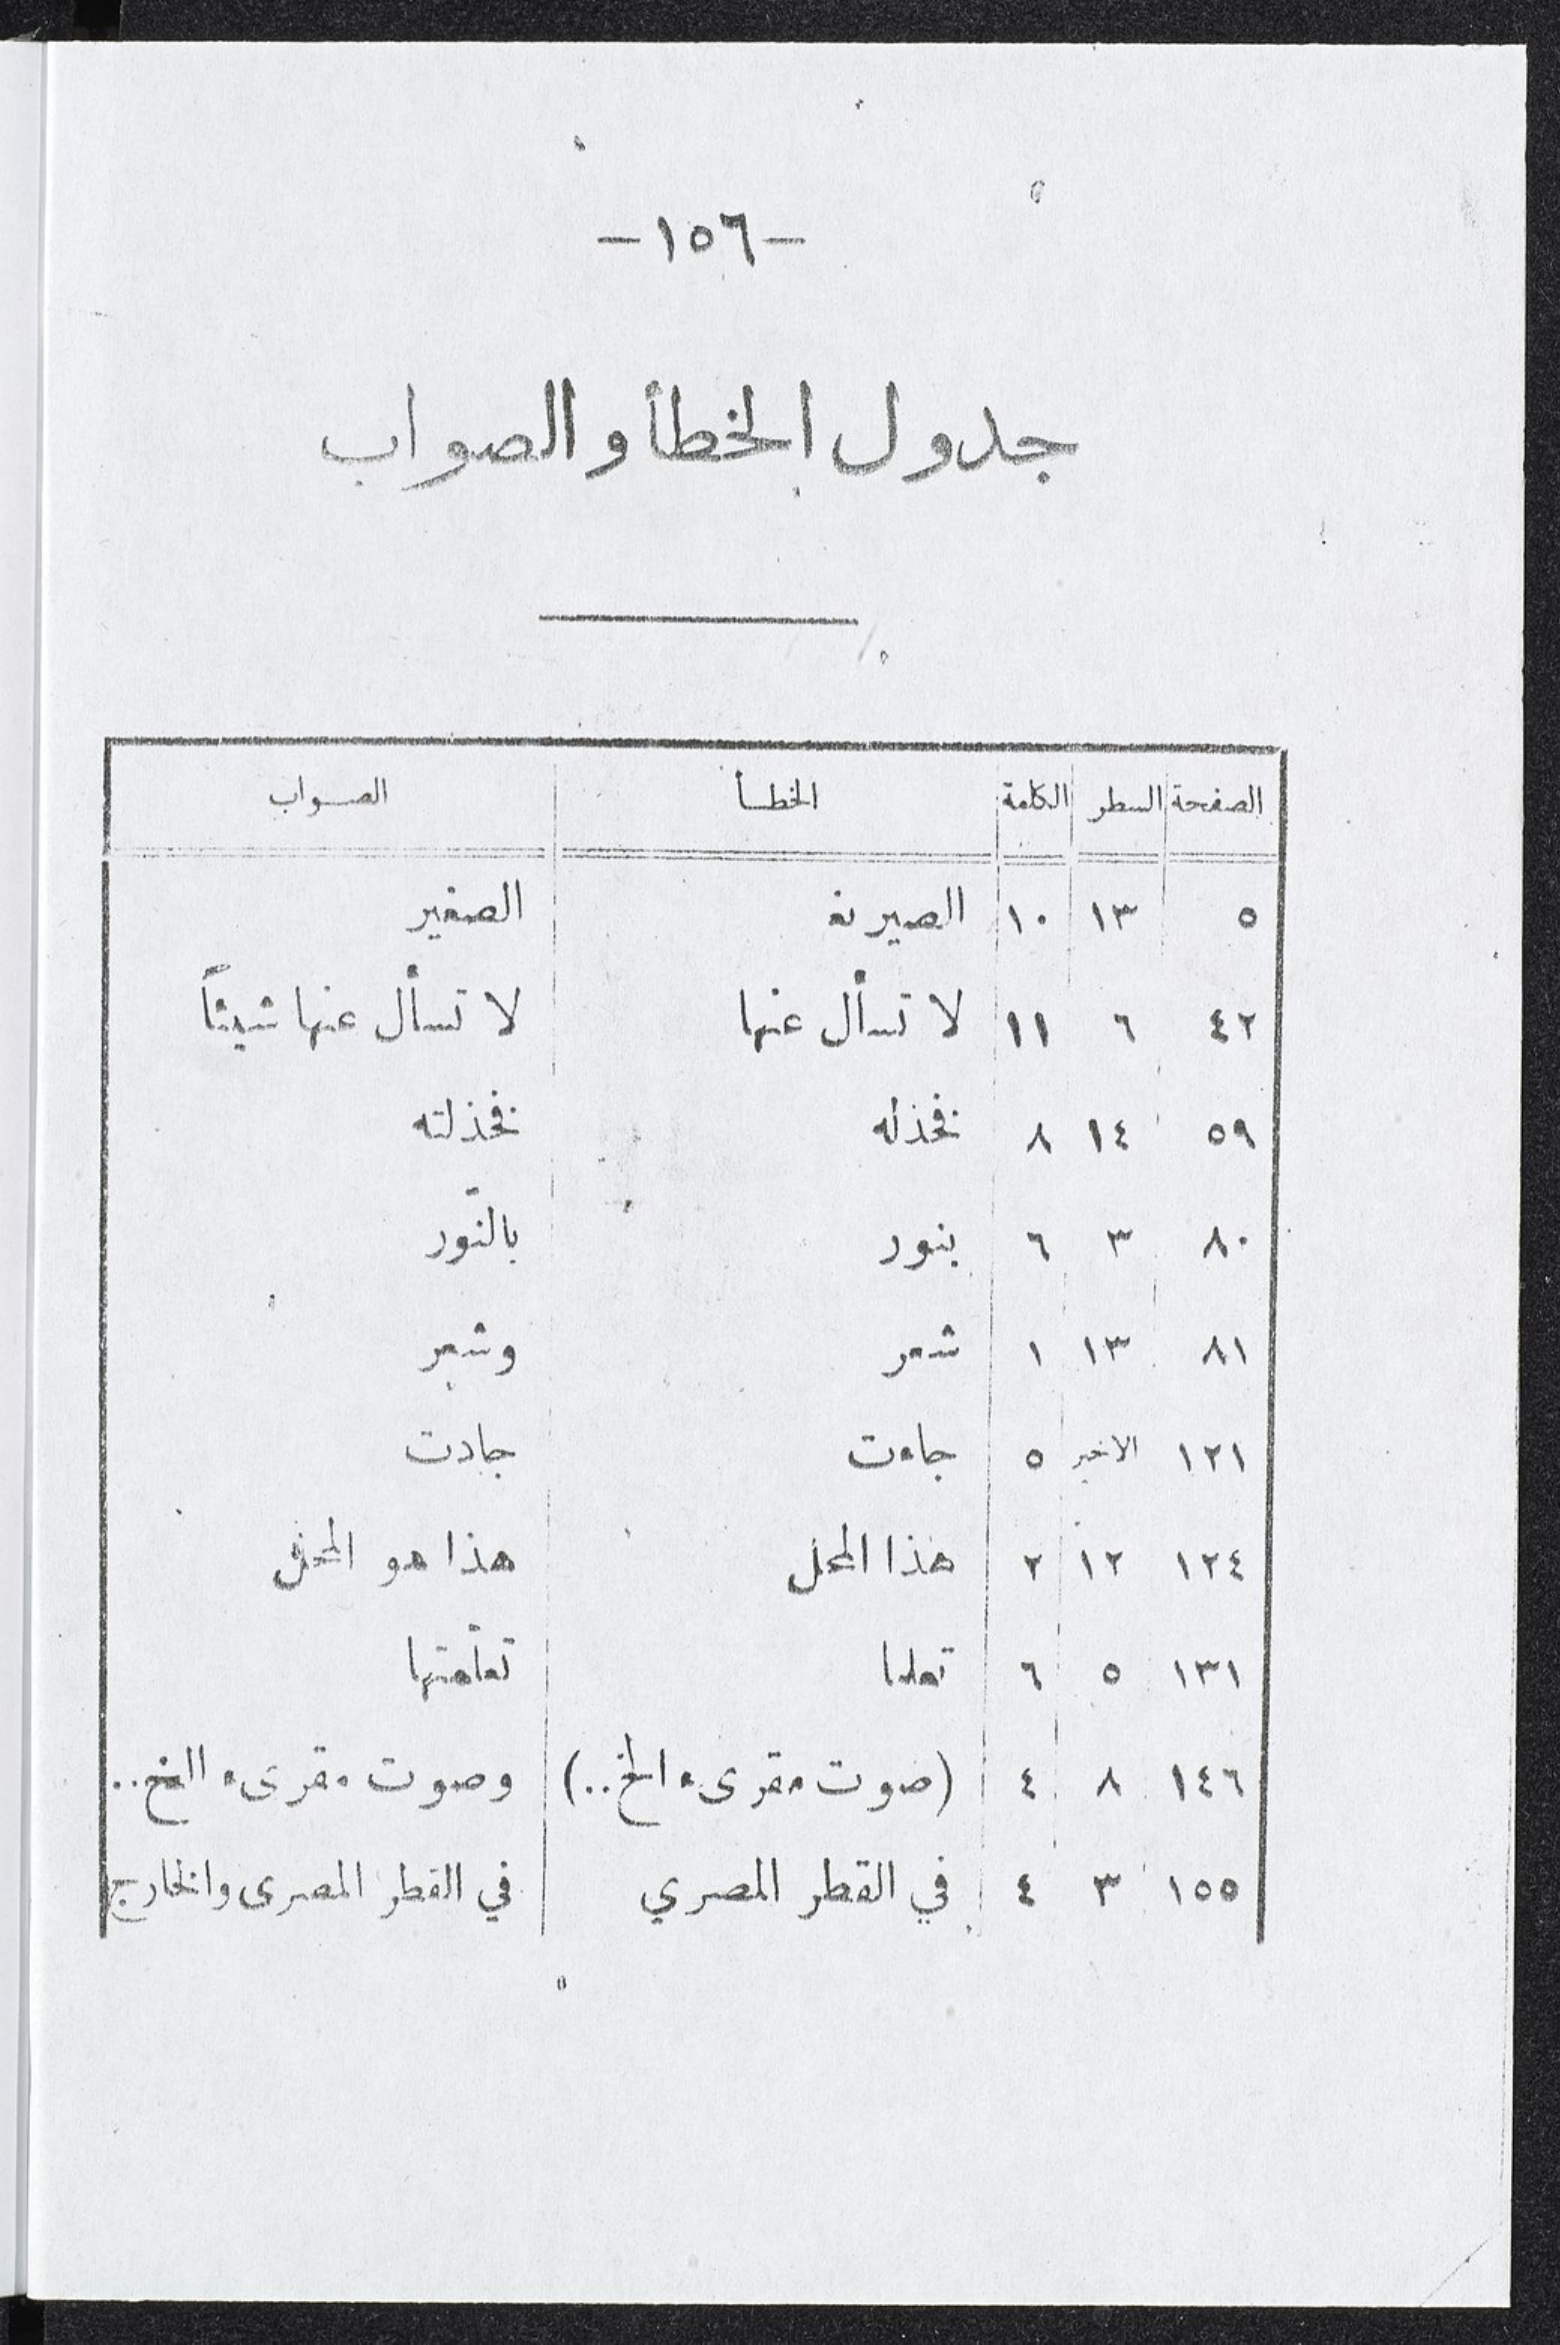 -١٥٦-
جدول الخطأ والصواب
الصفحة السطر الكلمة الخطأ الصواب
٥ ١٣ ١٠ الصيرنه الصغير
٤٢ ٦ ١١ لا تسأل عنها لا تسأل عنها شيئاً
٥٩ ١٤ ٨ فخذله فخذلته
٨٠ ٣ ٦ بنور بالنّور
٨١ ١٣ ١ شعر وشعر
١٢١ الاخير ٥ جاءت جادت
١٢٤ ١٢ ٢ هذا المحل هذا هو المحل
١٣١ ٥ ٦ تعلما تعلّمتها
١٤٦ ٨ ٤ (صوت مقرىء الخ..) وصوت مقرىء الخ..
١٥٥ ٣ ٤ في القطر المصري في القطر المصرى والخارج